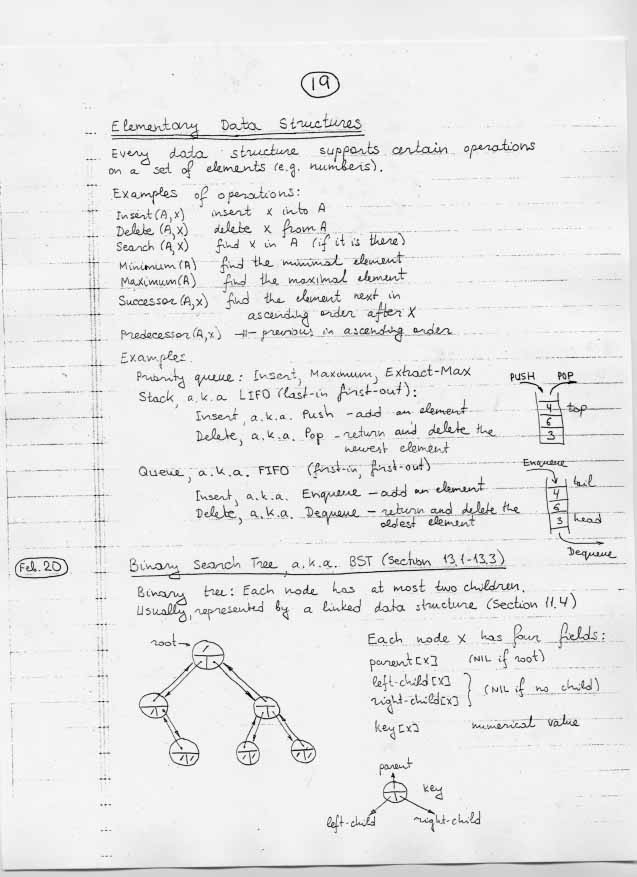 19
Elementary Data Structures
Every data structure supports certain operations
on a set of elements (e.g. numbers).
Examples of operations:
Insert (A,x) insert x into A
Delete (A,x) delete x from A
Search (A,x) find x in A (if it is there)
Minimum (A) find the minimal element
Maximum (A) find the maximal element
Successor (A,x) find the element next in
ascending order after x
Predecessor (A,x) -||- previous in ascending order
Examples
Priority queue: Insert, Maximum, Extract-Max
Stack, a.k.a LIFO (last-in first-out):
Insert, a.k.a. Push - add an element
Delete, a.k.a. Pop - return and delete the
newest element
PUSH POP
4 top
6
3
Queue, a.k.a. FIFO (first-in, first-out)
Insert, a.k.a. Enqueue - add an element
Delete, a.k.a. Dequeue - return and delete the
oldest element
Enqueue
tail
4
6
3 head
Dequeue
Feb. 20
Binary Search Tree, a.k.a. BST (Section 13.1-13.3)
Binary tree: Each node has at most two children.
Usually, represented by a linked data structure (Section 11.4)
root
Each node x has four fields:
parent[x] (NIL if root)
left-child[x]
right-child[x] } (NIL if no child)
key[x] numerical value
parent
key
left-child right-child